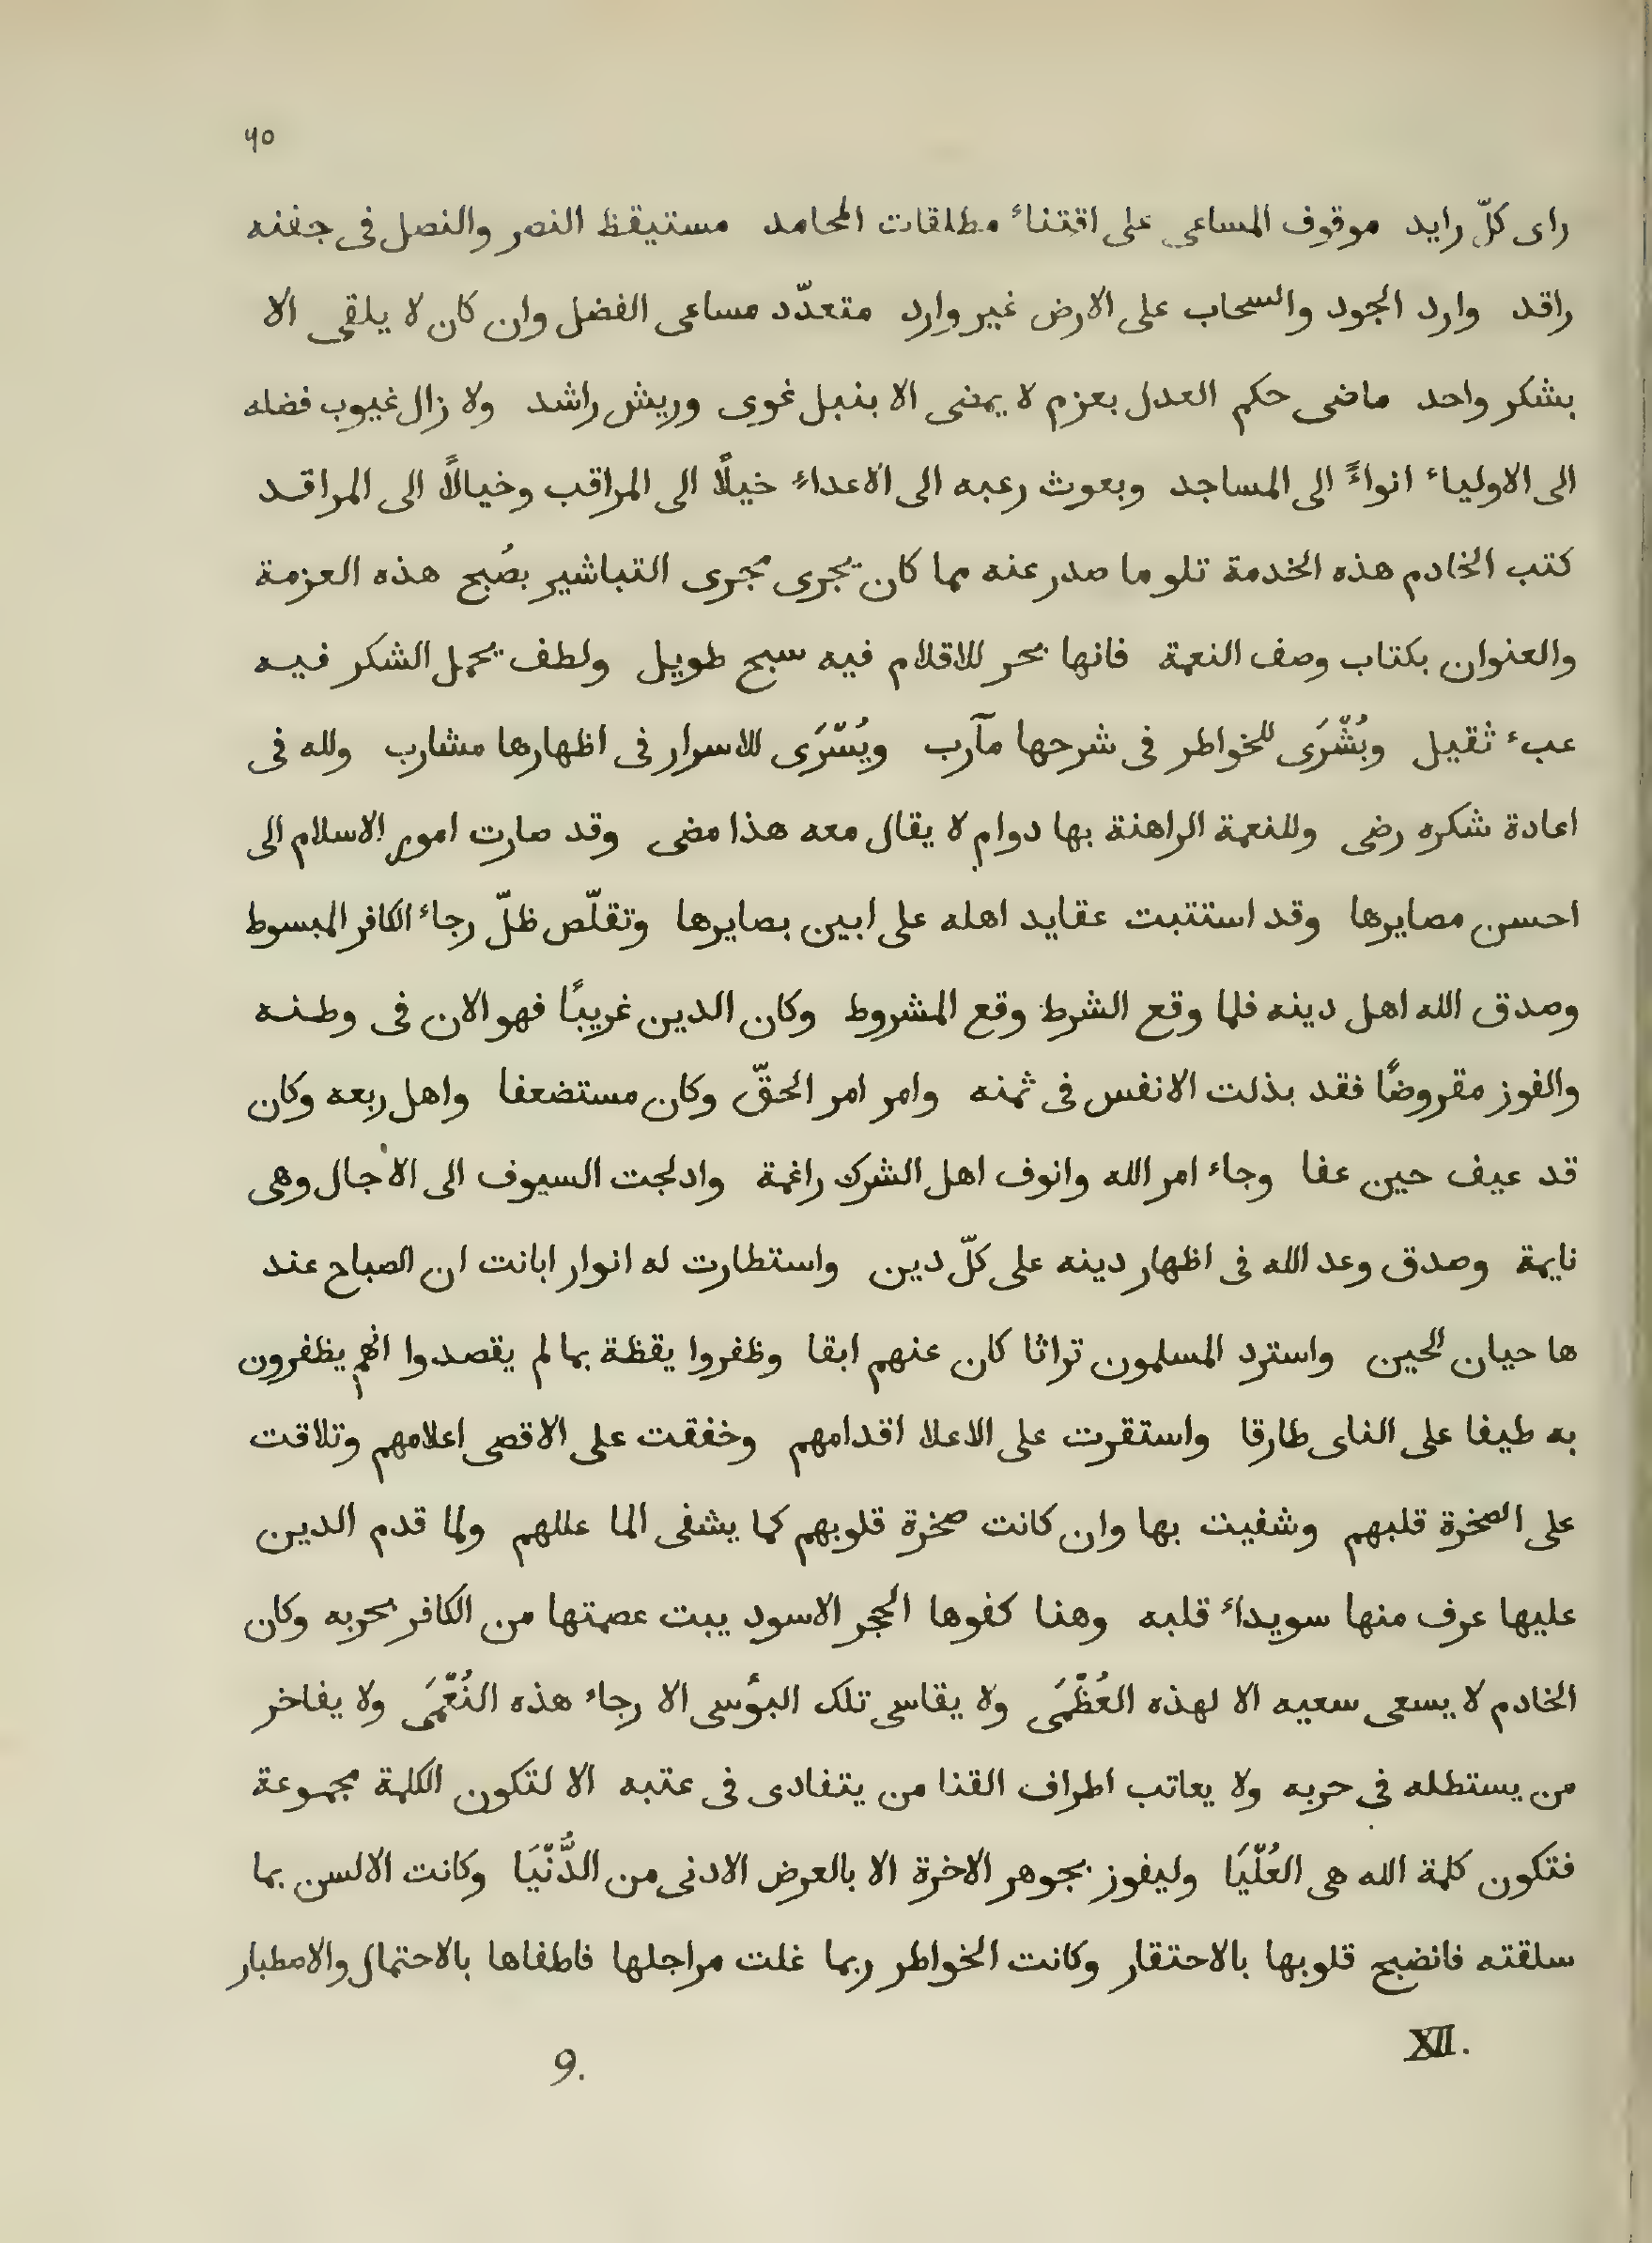 ٦٥
راى كلّ رايد موقوف المساعى على اقتناء مطلقات المحامد مستيقظ النصر والنصل فى جفنه
راقد وارد الجود والسحاب على الارض غير وارد متعدّد مساعى الفضل وان كان لا يلقى الا
بشكر واحد ماضى حكم العدل بعزم لا يمضى الا بنبل غوى وريش راشد ولا زال غيوب فضله
الى الاولياء انواءً الى المساجد وبعوث رعبه الى الاعداء خيلًا الى المراقب وخيالًا الى المراقد
كتب الخادم هذه الخدمة تلو ما صدر عنه مما كان يجرى مجرى التباشير بصُبح هذه العزمة
والعنوان بكتاب وصف النعمة فانها بحر للاقلام فيه سبح طويل ولطف يحمل الشكر فيه
عبء ثقيل وبُشْرَى للخواطر فى شرحها مآرب ويُسْرَى للاسرار فى اظهارها مشارب ولله فى
اعادة شكره رضى وللنعمة الراهنة بها دوام لا يقال معه هذا مضى وقد صارت امور الاسلام الى
احسن مصايرها وقد استتبت عقايد اهله على ابين بصايرها وتقلّص ظلّ رجاء الكافر المبسوط
وصدق الله اهل دينه فلما وقع الشرط وقع المشروط وكان الدين غريبًا فهو الان فى وطنه
والفوز مقروضًا فقد بذلت الانفس فى ثمنه وامر امر الحقّ وكان مستضعفا واهل ربعه وكان
قد عيف حين عفا وجاء امر الله وانوف اهل الشرك راغمة وادلجت السيوف الى الاجال وهى
نايمة وصدق وعد الله فى اظهار دينه على كلّ دين واستطارت له انوار ابانت ان الصباح عند
ها حيان الحين واسترد المسلمون تراثا كان عنهم ابقا وظفروا يقظة بما لم يقصدوا انهم يظفرون
به طيفا على الناى طارقا واستقرت على الاعلا اقدامهم وخفقت على الاقصى اعلامهم وتلاقت
على الصخرة قلبهم وشفيت بها وان كانت صخرة قلوبهم كما يشفى الما عللهم ولما قدم الدين
عليها عرف منها سويداء قلبه وهنا كفوها الحجر الاسود يبت عصمتها من الكافر بحربه وكان
الخادم لا يسعى سعيه الا لهذه العُظْمَى ولا يقاسى تلك البؤسى الا رجاء هذه النُعْمَى ولا يفاخر
من يستطله فى حربه ولا يعاتب اطراف القنا من يتفادى فى عتبه الا لتكون الكلمة مجموعة
فتكون كلمة الله هى العُلْيَا وليفوز بجوهر الاخرة الا بالعرض الادنى من الدُّنْيَا وكانت الالسن بما
سلقته فانضبح قلوبها بالاحتقار وكانت الخواطر ربما غلت مراجلها فاطفاها بالاحتمال والاصطبار
XII. 9.